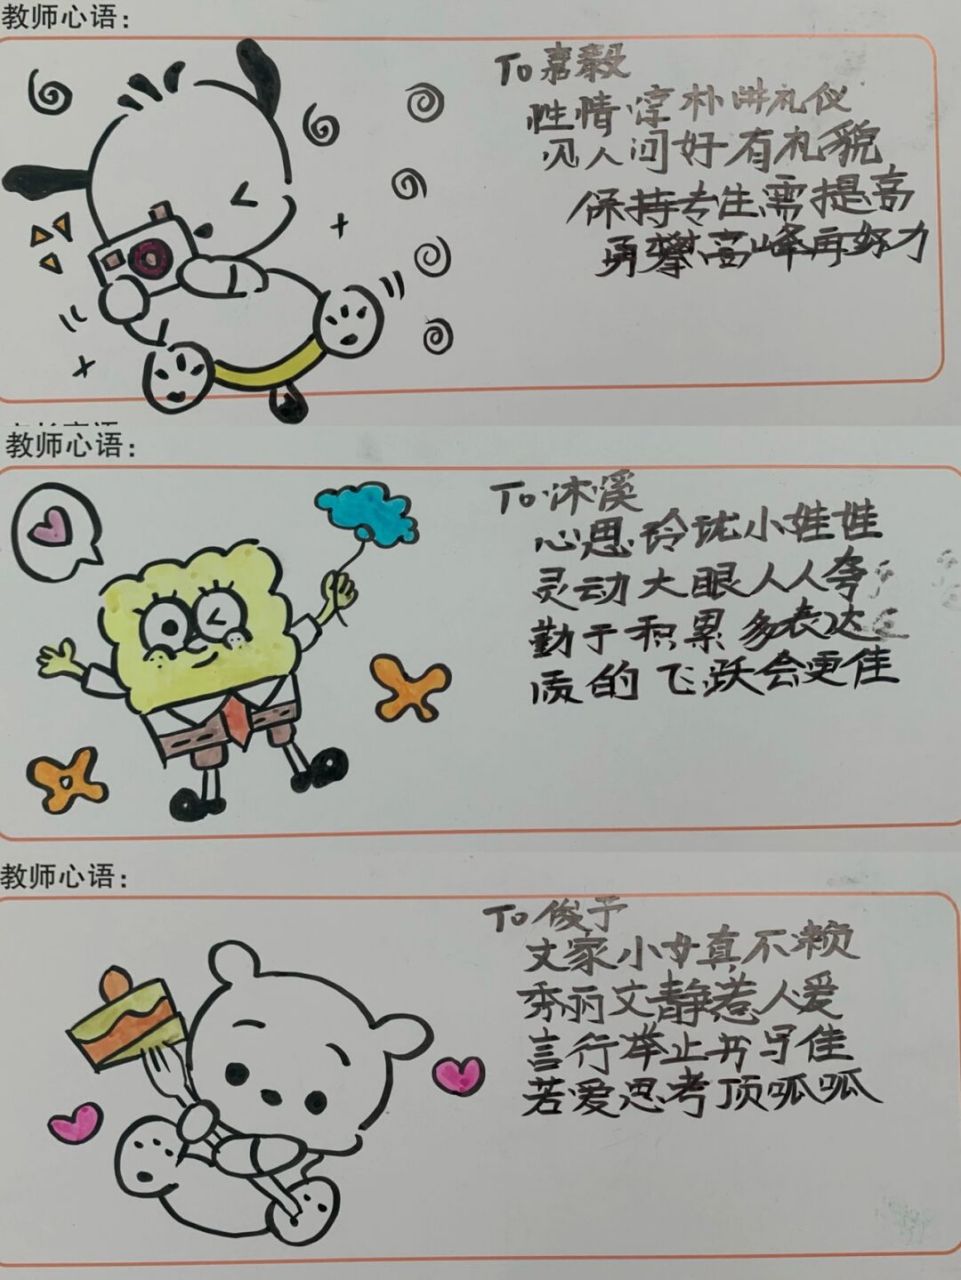 教师心语：
To 嘉毅
性情淳朴讲礼仪
见人问好有礼貌
保持专注需提高
勇攀高峰再努力
教师心语：
To 沐溪
心思玲珑小娃娃
灵动大眼人人夸
勤于积累多表达
质的飞跃会更佳
教师心语：
To 俊予
文家小女真不赖
秀丽文静惹人爱
言行举止书写佳
若爱思考顶呱呱